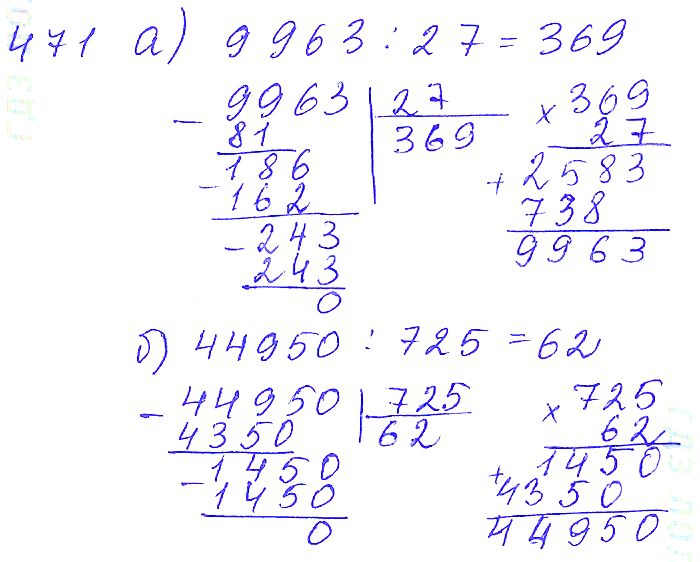 471 а) 9963 : 27 = 369
- 9963 27 × 369
81 369 27
186 + 2583
- 162 738
- 243 9963
243
0
б) 44950 : 725 = 62
- 44950 725 × 725
4350 62 62
- 1450 + 1450
1450 4350
0 44950